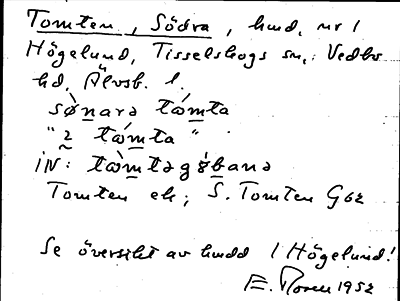 Tomten, Södra, hmd, nr 1
Högelund, Tisselskogs sn, Vedbo
hd, Älvsb. l.
sønara tɷmta
" 2 tɷmta "
iN: tɷmtagøbana
Tomten ek; S. Tomten Gsz
Se översikt av hmdd / Högelund!
E. Noreen 1952